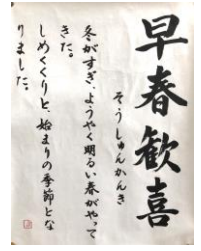 早春歓喜
そうしゅんかんき
冬がすぎ、ようやく明るい春がやって
きた。
しめくくりと、始まりの季節とな
りました。